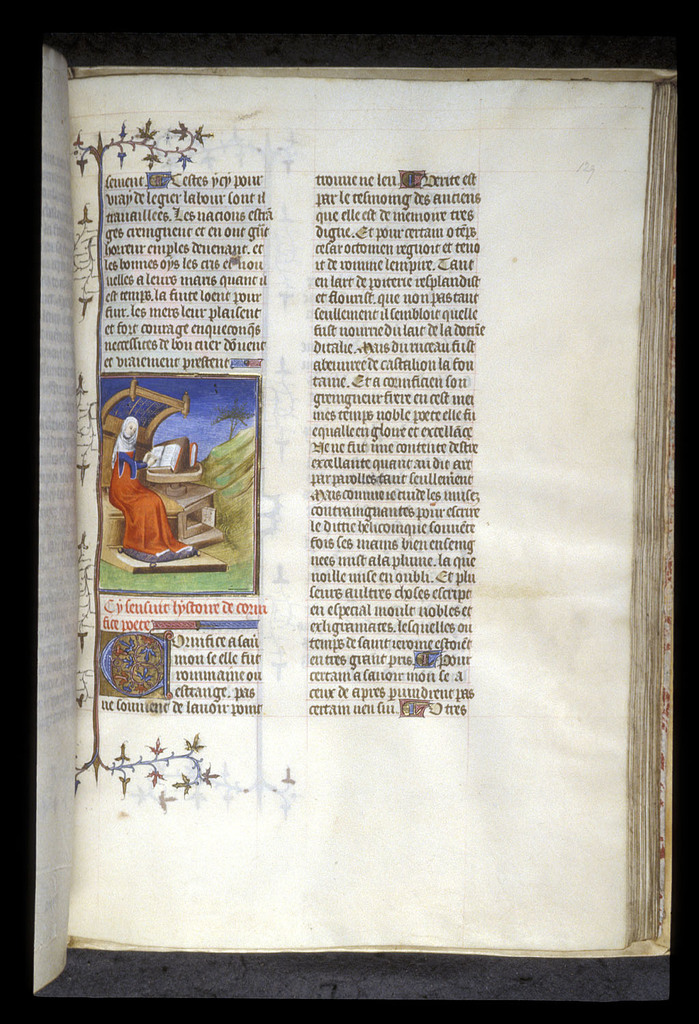 sement Certes ycy pour
vray de legier labour sont il
travaillees. Les nacions estra
ges creingnent et en ont grāt
horreur emples devenant. et
les bonnes oys les cris et nou
velles a leurs maris quant il
est temps. la fuite loent pour
fuir. les mers leur plaisent
et fort courage en quecōqs
necessites de bon cuer dōnent
et vraiement prestent
Cy sensuit lystoire de corni
fice poete
Cornifice a sau
mon se elle fut
rommaine ou
estrange. pas
ne souvient de lavoir point
129
trouve ne leu Verite est
par le tesmoing des anciens
que elle est de memoire tres
digne. Et pour certain o tēps
cesar octovien regnoit et teno
it de romme lempire. Tant
en lart de poeterie resplandist
et flourist. que non pas tant
seullement il sembloit quelle
fust nourrie du lait de la doctrīe
ditalie. Mais du ruceau fust
abeuvree de castalion la fon
taine. Et a cornificien son
greingneur frere en cest mei
mes temps noble poete elle fu
equalle en gloire et excellāce
Ne ne fut une contente destre
excellante quant au dit art
par parolles tant seullement
Mais comme ie cuide les muses
contraingnantes pour escrire
le dictie helicomque souvēt
fois ses mains bien enseng
nees mist a la plume. la que
noille mise en oubli. Et plu
seurs aultres choses escript
en especial moult nobles et
exligramates. lesquelles ou
temps de saint ierome estoiēt
en tres grant pris. Pour
certain a savoir mon se a
ceux de apres pivindrent pas
certain nen sui. O tres